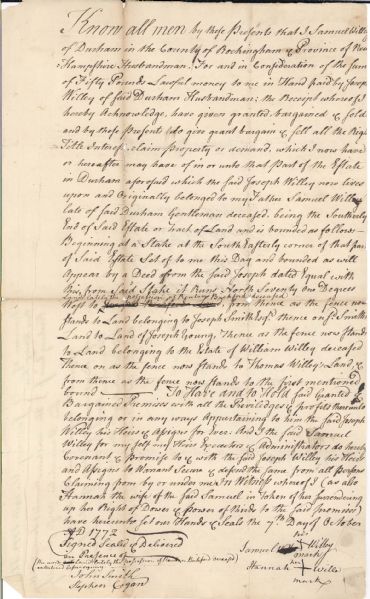 Know all men by these Presents that I Samuel Willey
of Durham in the County of Rockingham & Province of New
Hampshire Husbandman: For and in Consideration of the Sum
of Fifty Pounds Lawful money to me in Hand paid by Joseph
Willey of said Durham Husbandman; the Receipt whereof I
hereby Acknowledge, have given granted bargained & sold
and by these presents do give grant bargain & sell all the Right
Title Interest claim property or demand, which I now have
or hereafter may have of in or unto that Part of the Estate
in Durham aforesaid which the said Joseph Willey now lives
upon and Originally belonged to my Father Samuel Willey
late of said Durham Gentleman deceased, being the Southerly
End of said Estate or tract of Land and is bounded as follows
Beginning at a Stake at the South Easterly corner of that part
of said Estate Set of to me this Day and bounded as will
Appear by a Deed from the said Joseph dated Equal with
this, from said Stake it Runs North Seventy one Degrees
West to deceased from thence as the fence now
Stands to Land belonging to Joseph Smith Esqr. thence on sd. Smiths
Land to Land of Joseph Young, Thence as the fence now Stands
to Land belonging to the Estate of William Willey deceased
Thence on as the fence now Stands to Thomas Willeys Land &
from thence as the fence now Stands to the first mentioned
bound To Have and to Hold said Granted &
Bargained Premises with all the Priviledges & profits thereunto
belonging or in any ways Appertaining to him the said Joseph
Willey his Heirs & Assigns for Ever And I the said Samuel
Willey for my self my Heirs Executors & Administrators do hereby
Covenant & Promise to & with the said Joseph Willey his Heirs
and Assigns to Warrant Secure & defend the same from all Persons
Claiming from by or under me In Witness whereof I (as also
Hannah the wife of the said Samuel in Token of her surrendering
up her Right of Dower & power of thirds to the said premises)
have hereunto set our Hands & Seals the 7th Day of October
AD 1772
Signed Sealed & Delivered
in Presence of
Samuel his Willey
mark
John Smith
Hannah her Willey
Stephen Cogan
mark